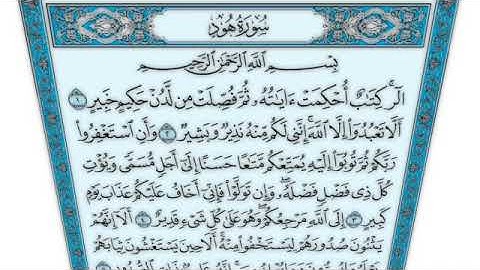 سُورَةُ هُودٍ
بِسْمِ اللَّهِ الرَّحْمَٰنِ الرَّحِيمِ
الٓر ۚ كِتَابٌ أُحْكِمَتْ ءَايَاتُهُۥ ثُمَّ فُصِّلَتْ مِن لَّدُنْ حَكِيمٍ خَبِيرٍ ١
أَلَّا تَعْبُدُوٓا۟ إِلَّا اللَّهَ ۚ إِنَّنِى لَكُم مِّنْهُ نَذِيرٌ وَبَشِيرٌ ٢ وَأَنِ اسْتَغْفِرُوا۟
رَبَّكُمْ ثُمَّ تُوبُوٓا۟ إِلَيْهِ يُمَتِّعْكُم مَّتَاعًا حَسَنًا إِلَىٰٓ أَجَلٍ مُّسَمًّى وَيُؤْتِ
كُلَّ ذِى فَضْلٍ فَضْلَهُۥ ۖ وَإِن تَوَلَّوْا۟ فَإِنِّىٓ أَخَافُ عَلَيْكُمْ عَذَابَ يَوْمٍ
كَبِيرٍ ٣ إِلَى اللَّهِ مَرْجِعُكُمْ ۖ وَهُوَ عَلَىٰ كُلِّ شَىْءٍ قَدِيرٌ ٤ أَلَآ إِنَّهُمْ
يَثْنُونَ صُدُورَهُمْ لِيَسْتَخْفُوا۟ مِنْهُ ۚ أَلَا حِينَ يَسْتَغْشُونَ ثِيَابَهُمْ